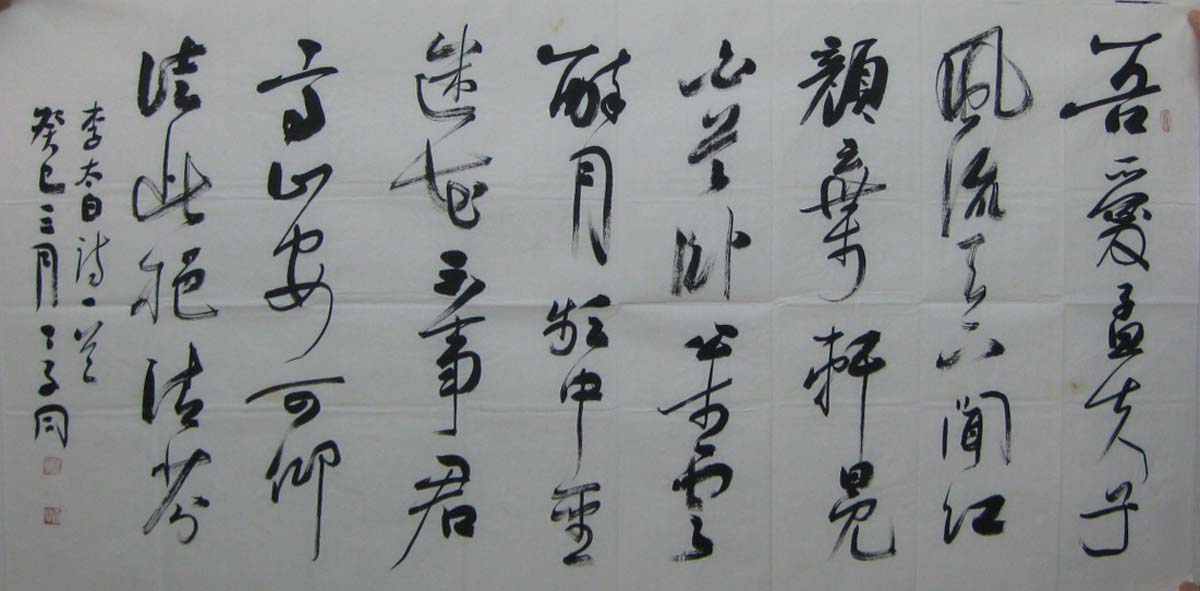 吾愛孟夫子
風流天下聞红
顏棄軒冕
白首卧松雲
醉月频中聖
迷花不事君
高山安可仰
徒此挹清芬
李太白诗一首
癸巳三月